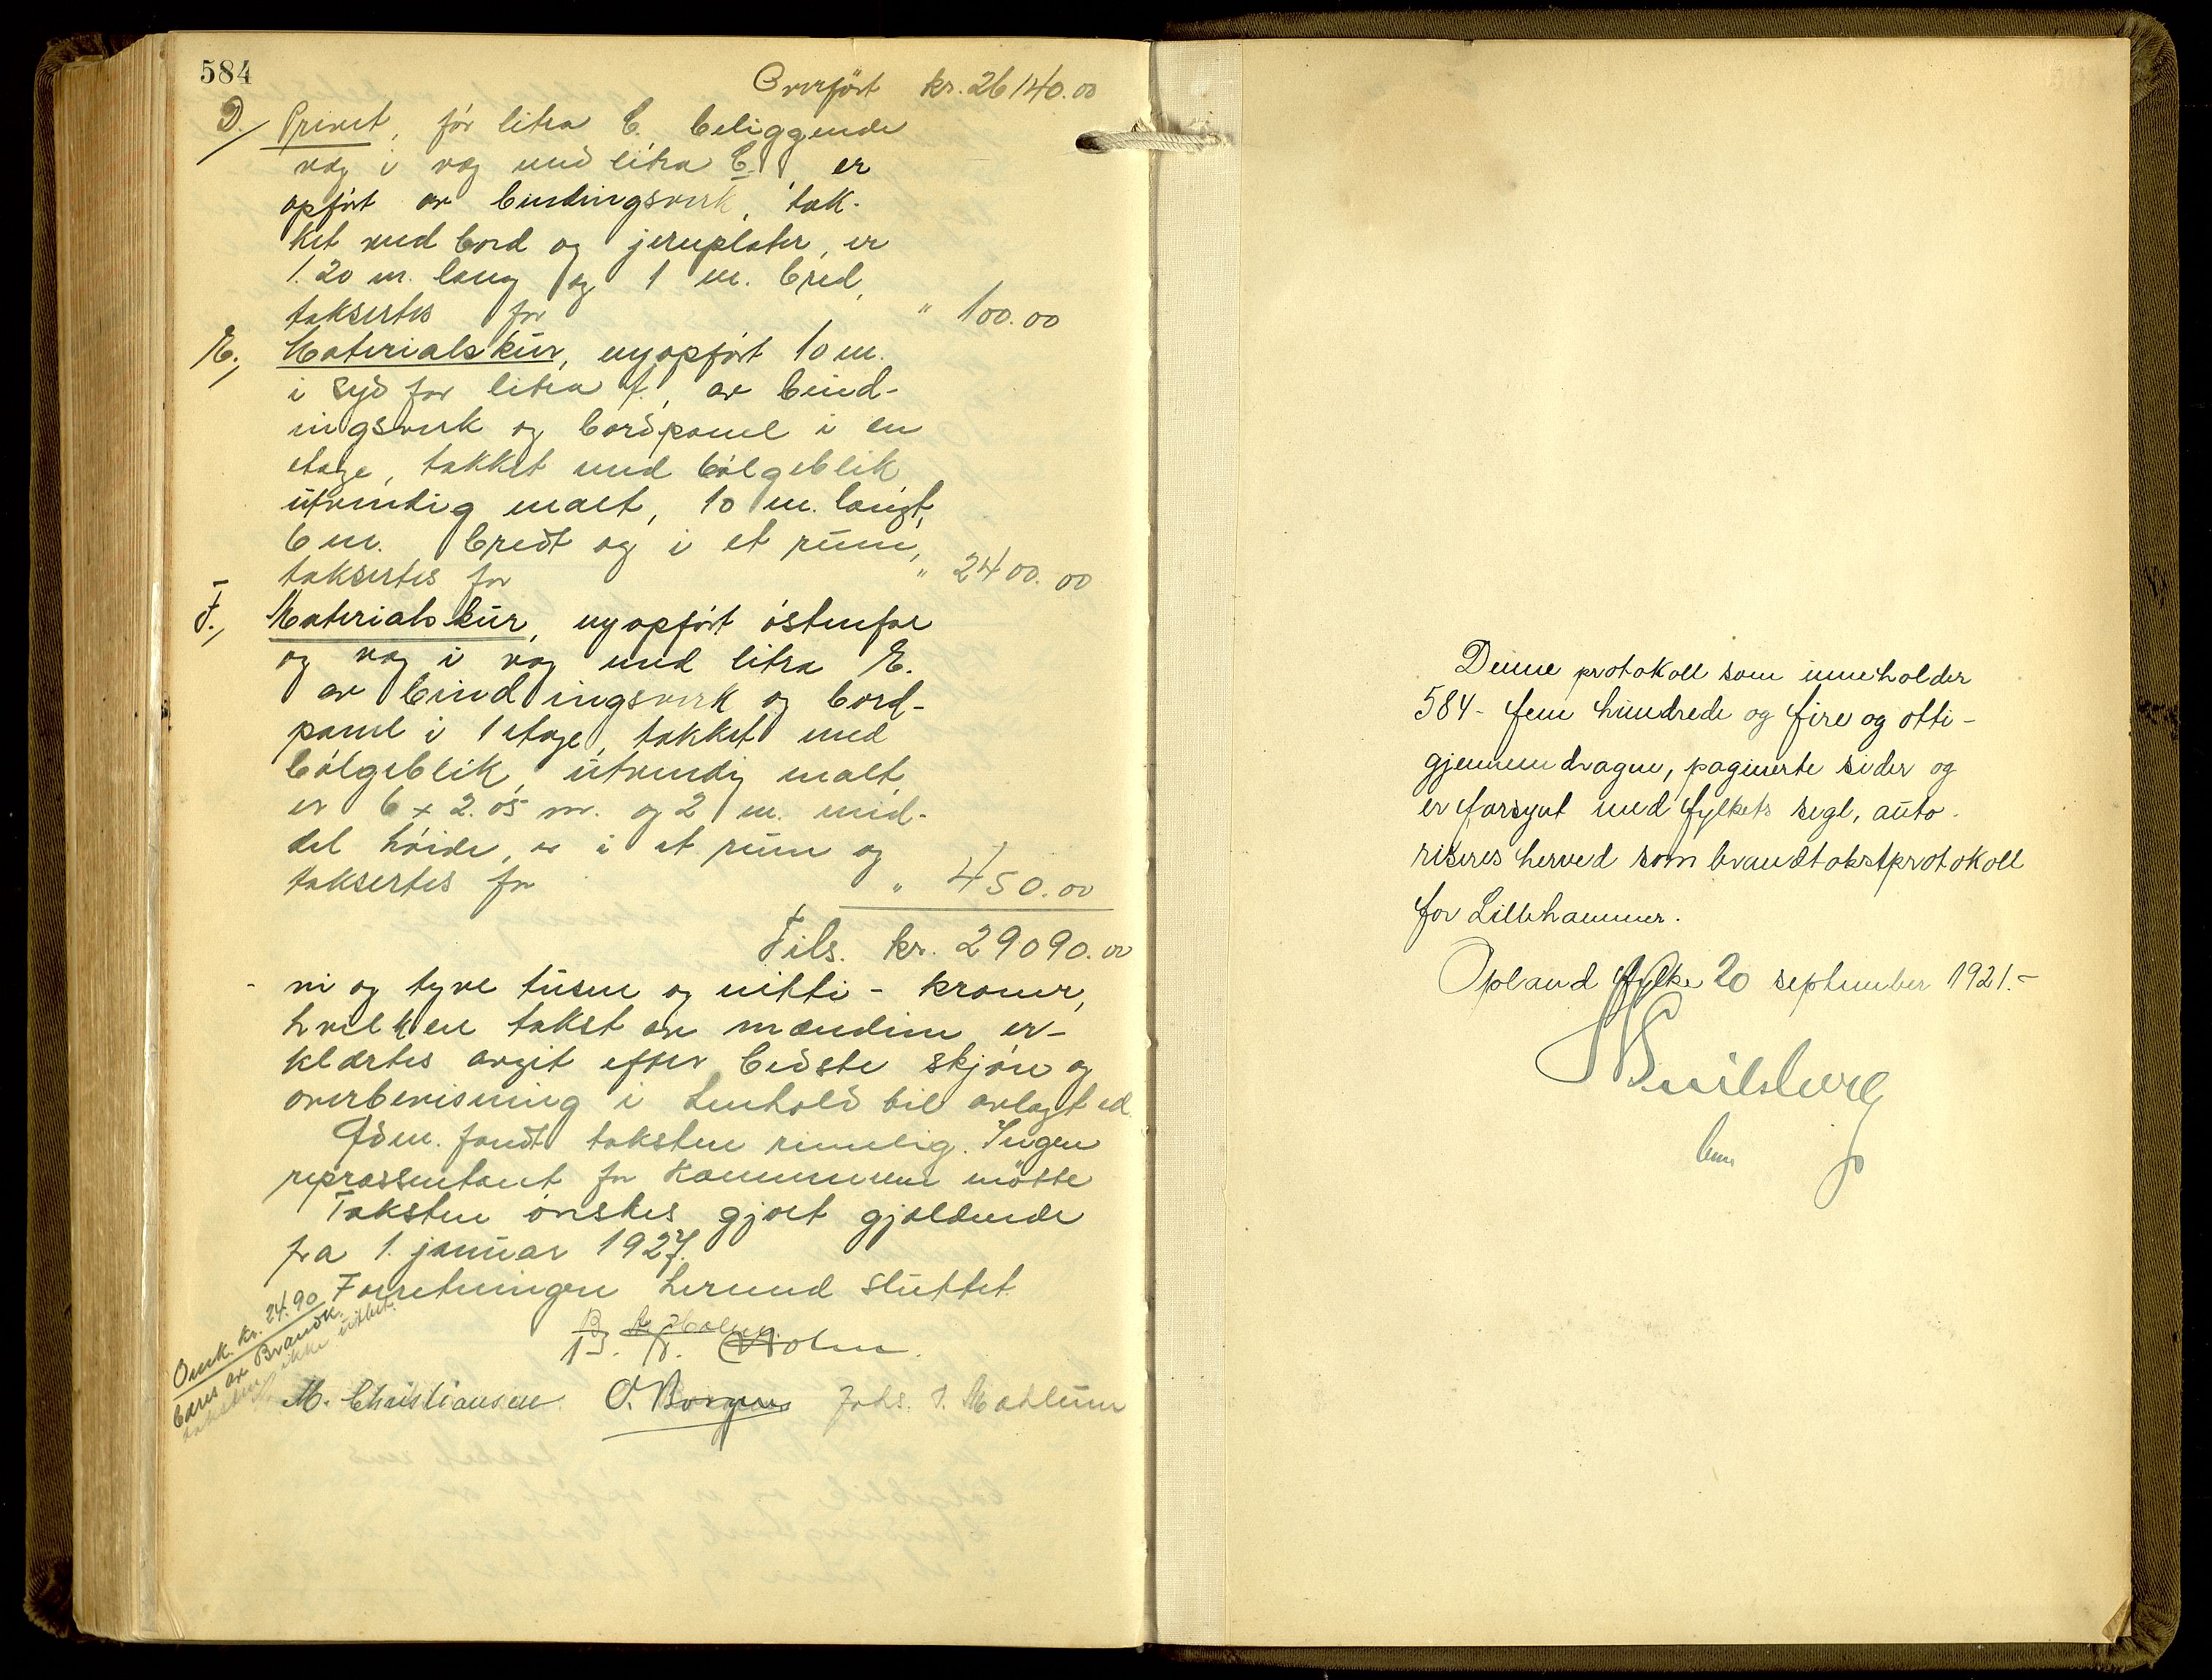 584
Overført kr. 26140.00
D./ Privet, før litra C. beliggende
væg i væg med litra C., er
opført av bindingsverk, tæk-
ket med bord og jernplater, er
1.20 m. lang og 1 m. bred,
taksertes for " 100.00
E./ Materialskur, nyopført 10 m.
i syd for litra A., av bind-
ingsverk og bordpanel i en
etage, tækket med bølgeblik
utvendig malt, 10 m. langt,
6 m. bredt og i et rum,
taksertes for " 2400.00
F./ Materialskur, nyopført østenfor
og væg i væg med litra E.
av bindingsverk og bord-
panel i 1 etage, tækket med
bølgeblik, utvendig malt,
er 6 x 2.05 m. og 2 m. mid-
del høide, er i et rum og
taksertes for " 450.00
Tils. kr. 29090.00
- ni og tyve tusen og nitti - kroner,
hvilken takst av mændene er-
klærtes avgit efter bedste skjøn og
overbevisning i henhold til avlagt ed.
Fdm. fandt taksten rimelig. Ingen
repræsentant for kommunen møtte
Taksten ønskes gjort gjældende
fra 1. januar 1927.
Forretningen hermed sluttet
B. K. Holm.
M. Christiansen O. Borgen Johs. J. Mæhlum
Omk. kr. 24.90
bæres av Brandk.
taksten ikke utløst.
Denne protokoll som inneholder
584 - fem hundrede og fire og otti -
gjennemdragne, paginerte sider og
er forsynt med fylkets segl, auto-
riseres herved som brandtakstprotokoll
for Lillehammer.
Opland fylke 20 september 1921.-